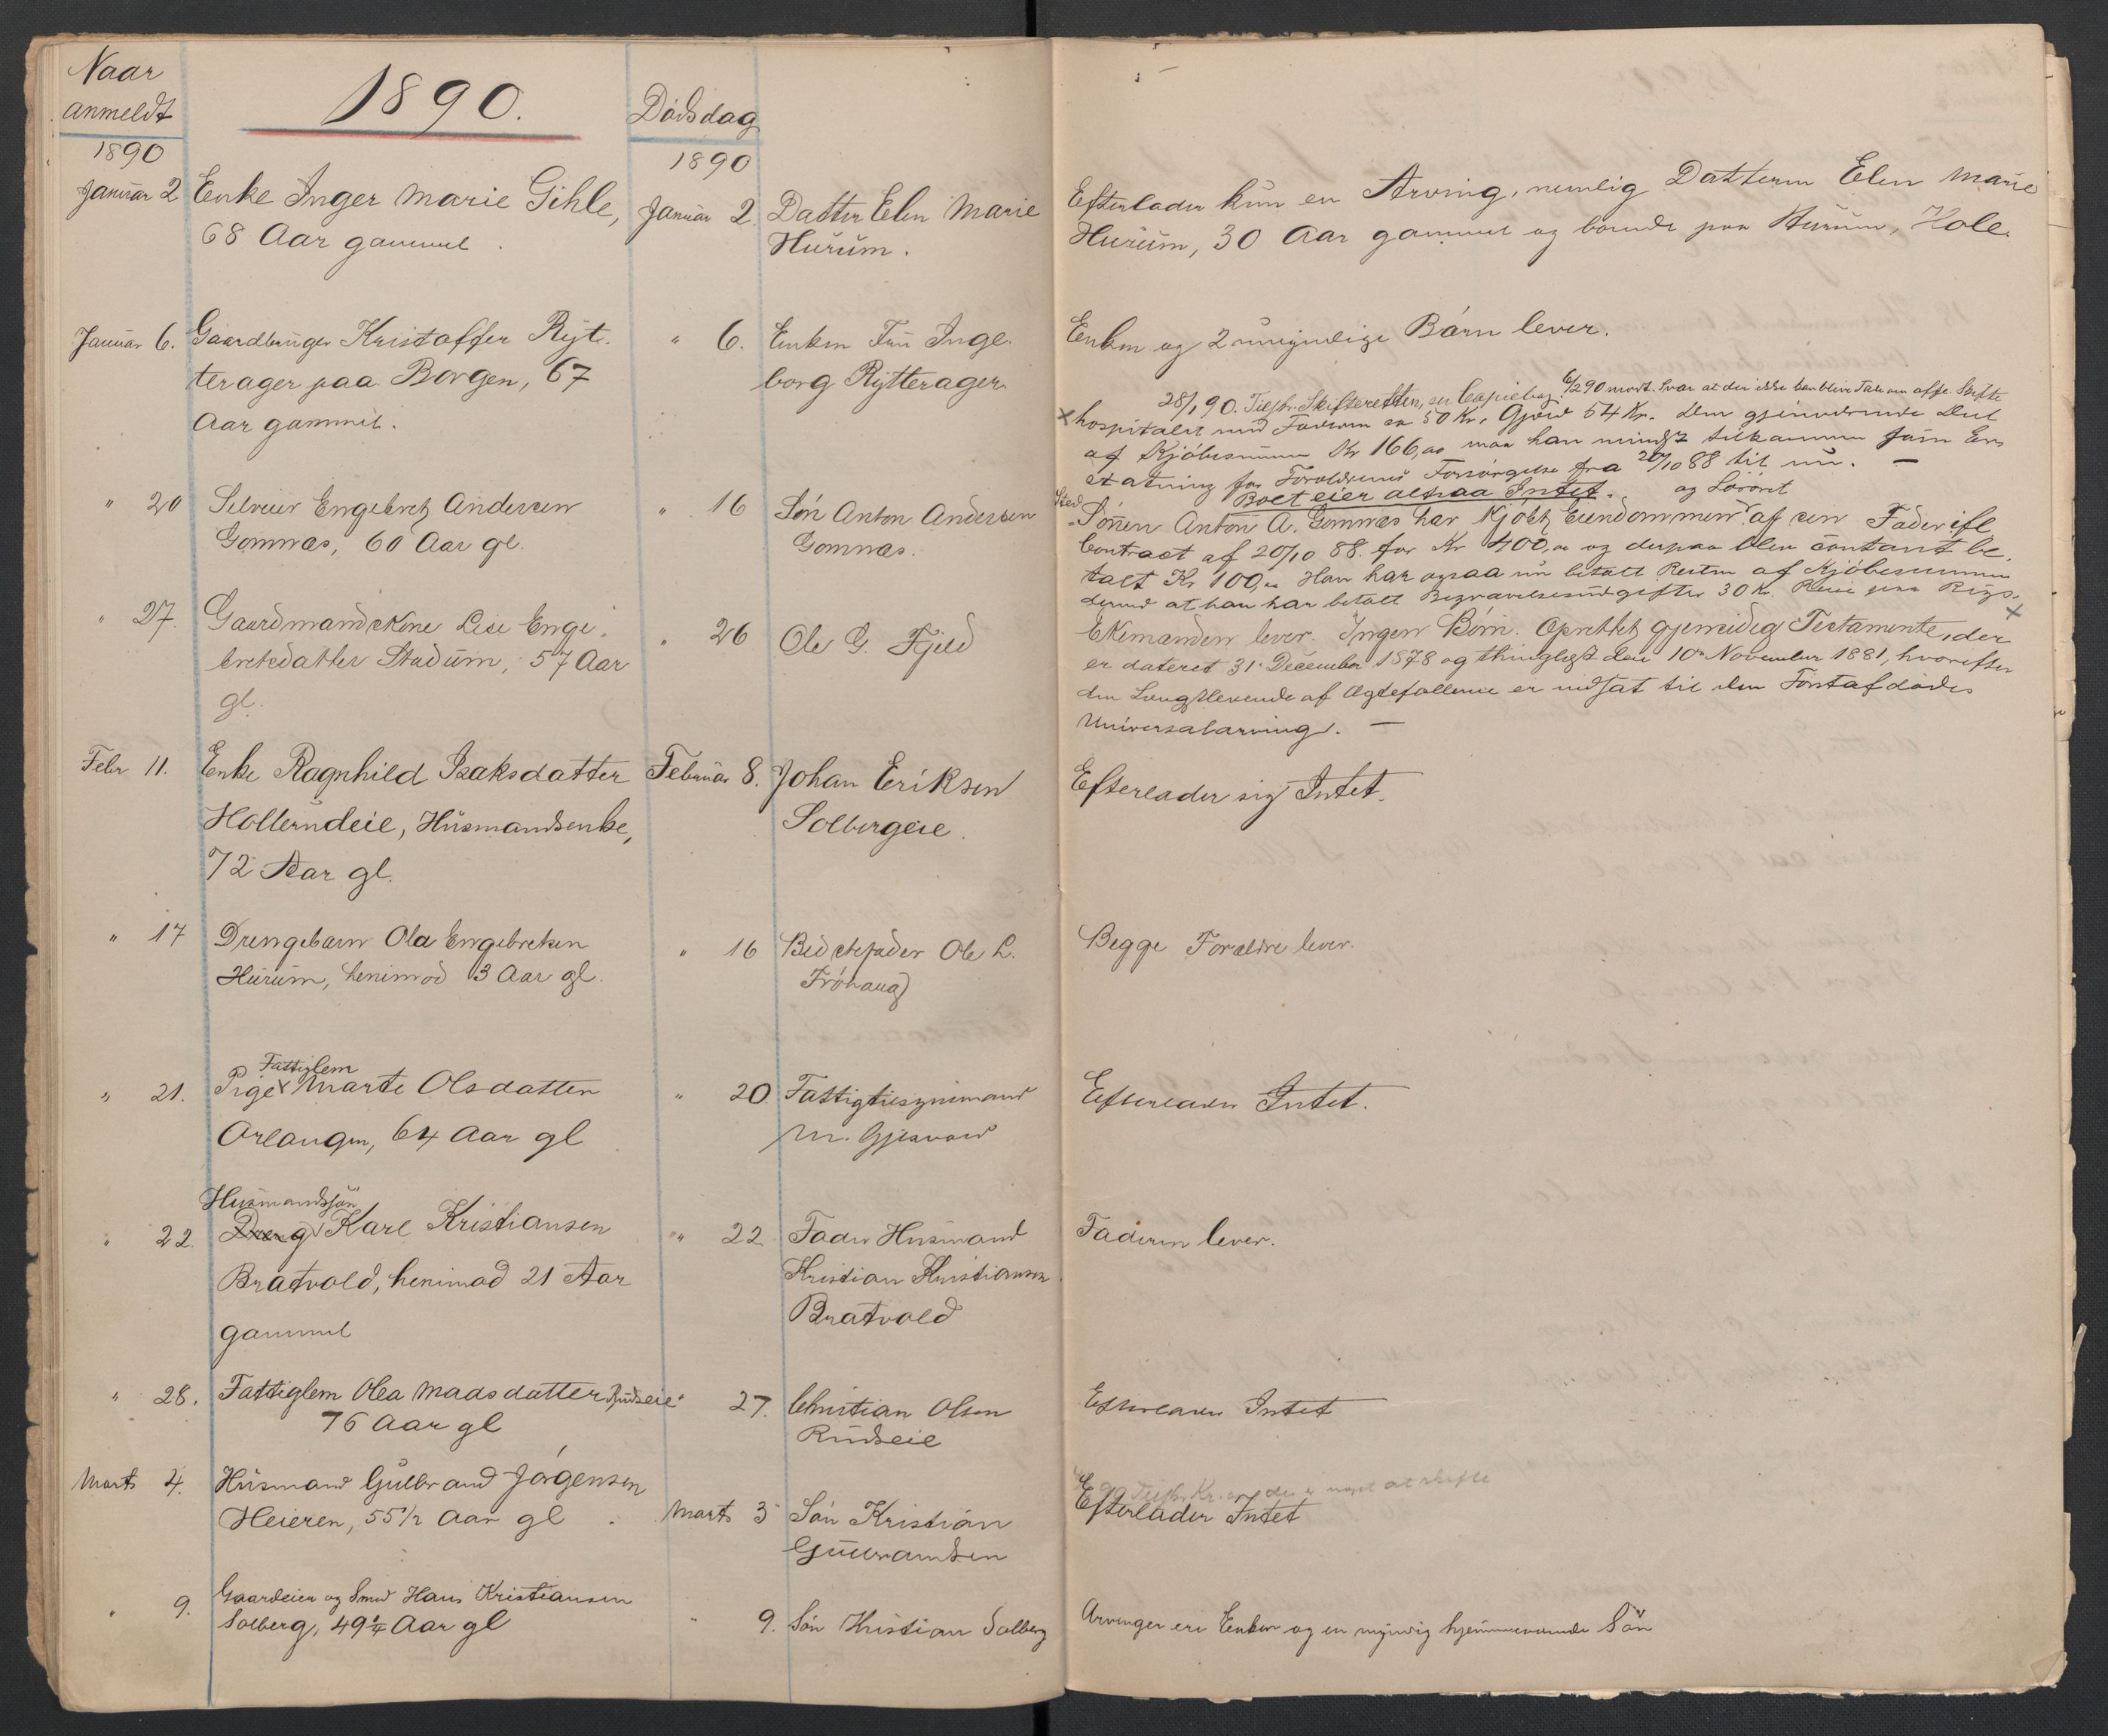 Naar
anmeldt
1890.
Dødsdag
1890
1890
Januar 2
Enke Inger Marie Gihle,
68 Aar gammel.
Januar 2.
Datter Elen Marie
Hurum.
Efterlader kun en Arving, nemlig Datteren Elen Marie
Hurum, 30 Aar gammel og boende paa Hurum, Hole.
Januar 6.
Gaardbruger Kristoffer Ryt-
terager paa Borgen, 67
Aar gammel.
" 6.
Enken Fru Inge-
borg Rytterager.
Enken og 2 umyndige Børn lever.
28/1 90. Tilskr. Skifteretten, se Copiebog. 6/2 90 modt. Svar at der ikke kan blive Tale om offtl. Skifte
× hospitalet med Faderen ca 50 Kr., Gjæld 54 Kr. Den gjenværende Deel
af Kjøbesummen Kr 166,00 maa han mindst tilkomme som Er-
statning for Forældrenes Forsørgelse fra 20/10 88 til nu. —
Boet eier altsaa Intet.
" 20
Selveier Engebret Andersen
Gomnæs, 60 Aar gl.
" 16
Søn Anton Andersen
Gomnæs.
og Løsøret
Sønnen Anton A. Gomnæs har kjøbt Eiendommen af sin Fader ifl.
Contract af 20/10 88. for Kr 400,00 og derpaa blev contant be-
talt Kr 100,00 Han har ogsaa nu betalt Resten af Kjøbesummen
derved at han har betalt Begravelsesudgifter 30 Kr. Reise paa Rigs- ×
" 27.
Gaardmandskone Lise Enge-
bretsdatter Stadum, 57 Aar
gl.
" 26
Ole G. Fjeld
Ektemanden lever. Ingen Børn. Oprettet gjensidig Testamente, der
er dateret 31 December 1878 og thinglæst den 10de November 1881, hvorefter
den Længstlevende af Ægtefællerne er indsat til den Førstafdødes
Universalarving. —
Febr 11.
Enke Ragnhild Isaksdatter
Hollerudeie, Husmandsenke,
72 Aar gl.
Februar 8.
Johan Eriksen
Solbergeie.
Efterlader sig Intet.
" 17
Drengebarn Ola Engebretsen
Hurum, henimod 3 Aar gl.
" 16
Bedstefader Ole L.
Frøhaug
Begge Forældre lever.
" 21.
Fattiglem
Pige Marte Olsdatter
64 Aar gl
" 20.
Fattigtilsynsmand
M. Gjesvold
Efterlader Intet.
Husmandssøn
" 22.
Dreng Karl Kristiansen
Bratvold, henimod 21 Aar
gammel
" 22
Fader Husmand
Kristian Kristiansen
Bratvold
Faderen lever.
" 28.
Fattiglem Olea Madsdatter Rudseie
76 Aar gl
" 27.
Christian Olsen
Rudseie
Efterlader Intet
Marts 4.
Husmand Gulbrand Jørgensen
Heieren, 55½ Aar gl.
Marts 3
Søn Kristian
Gulbrandsen
der er noget at skifte
Efterlader Intet
" 9.
Gaardeier og Smed Hans Kristiansen
Solberg, 49¼ Aar gl
" 9.
Søn Kristian Solberg
Arvinger ere Enken og en myndig hjemmeværende Søn